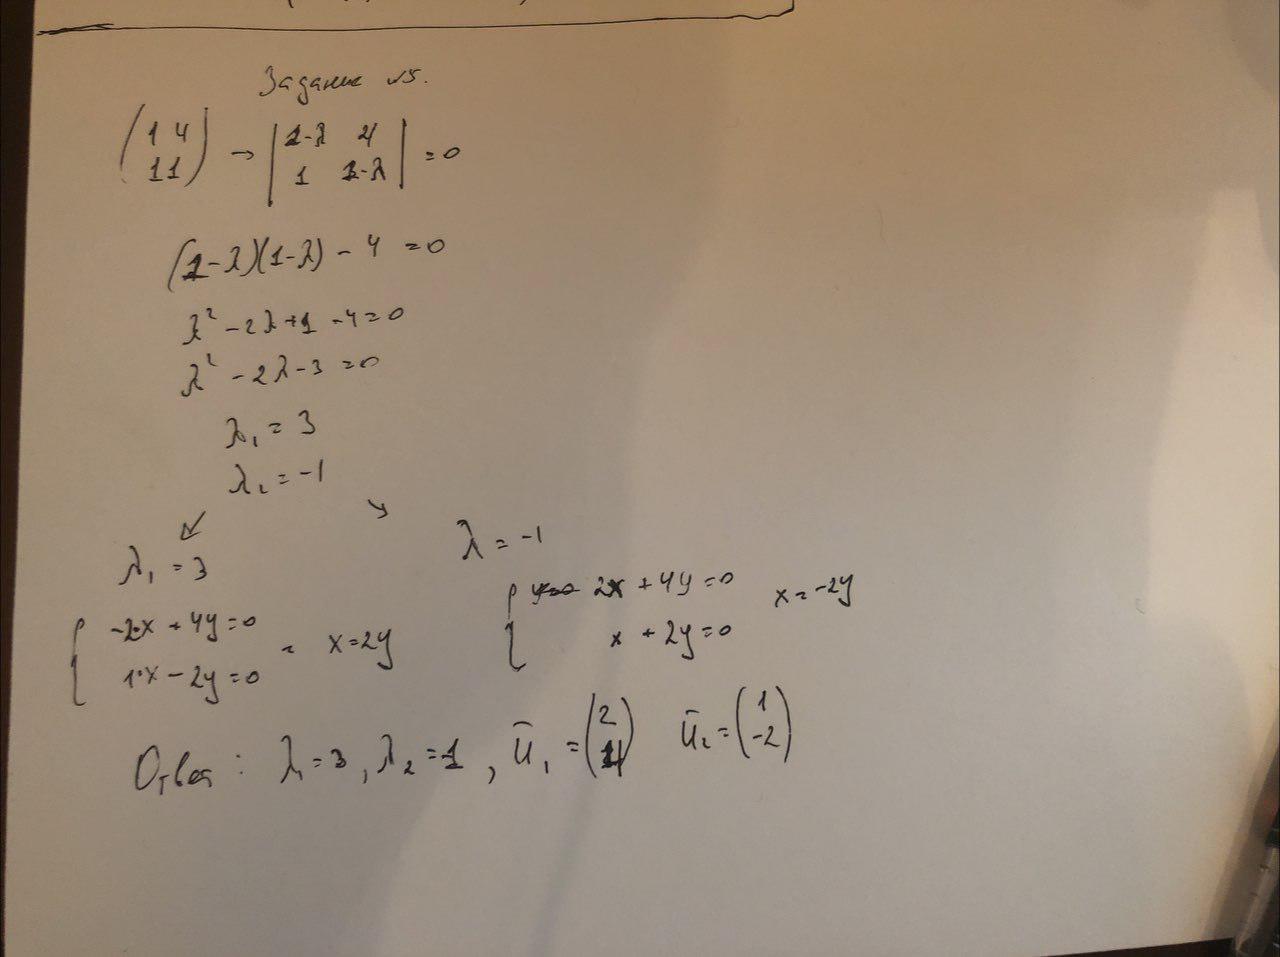 Задание №5.
(1 4
1 1) → |1-λ 4
1 1-λ| = 0
(1-λ)(1-λ) - 4 = 0
λ² - 2λ + 1 - 4 = 0
λ² - 2λ - 3 = 0
λ₁ = 3
λ₂ = -1
↙ ↘
λ₁ = 3
{ -2·x + 4y = 0
1·x - 2y = 0 = x = 2y
λ = -1
{ 2x + 4y = 0
x + 2y = 0 x = -2y
Ответ: λ₁ = 3, λ₂ = -1, ū₁ = (2
1) ū₂ = (1
-2)